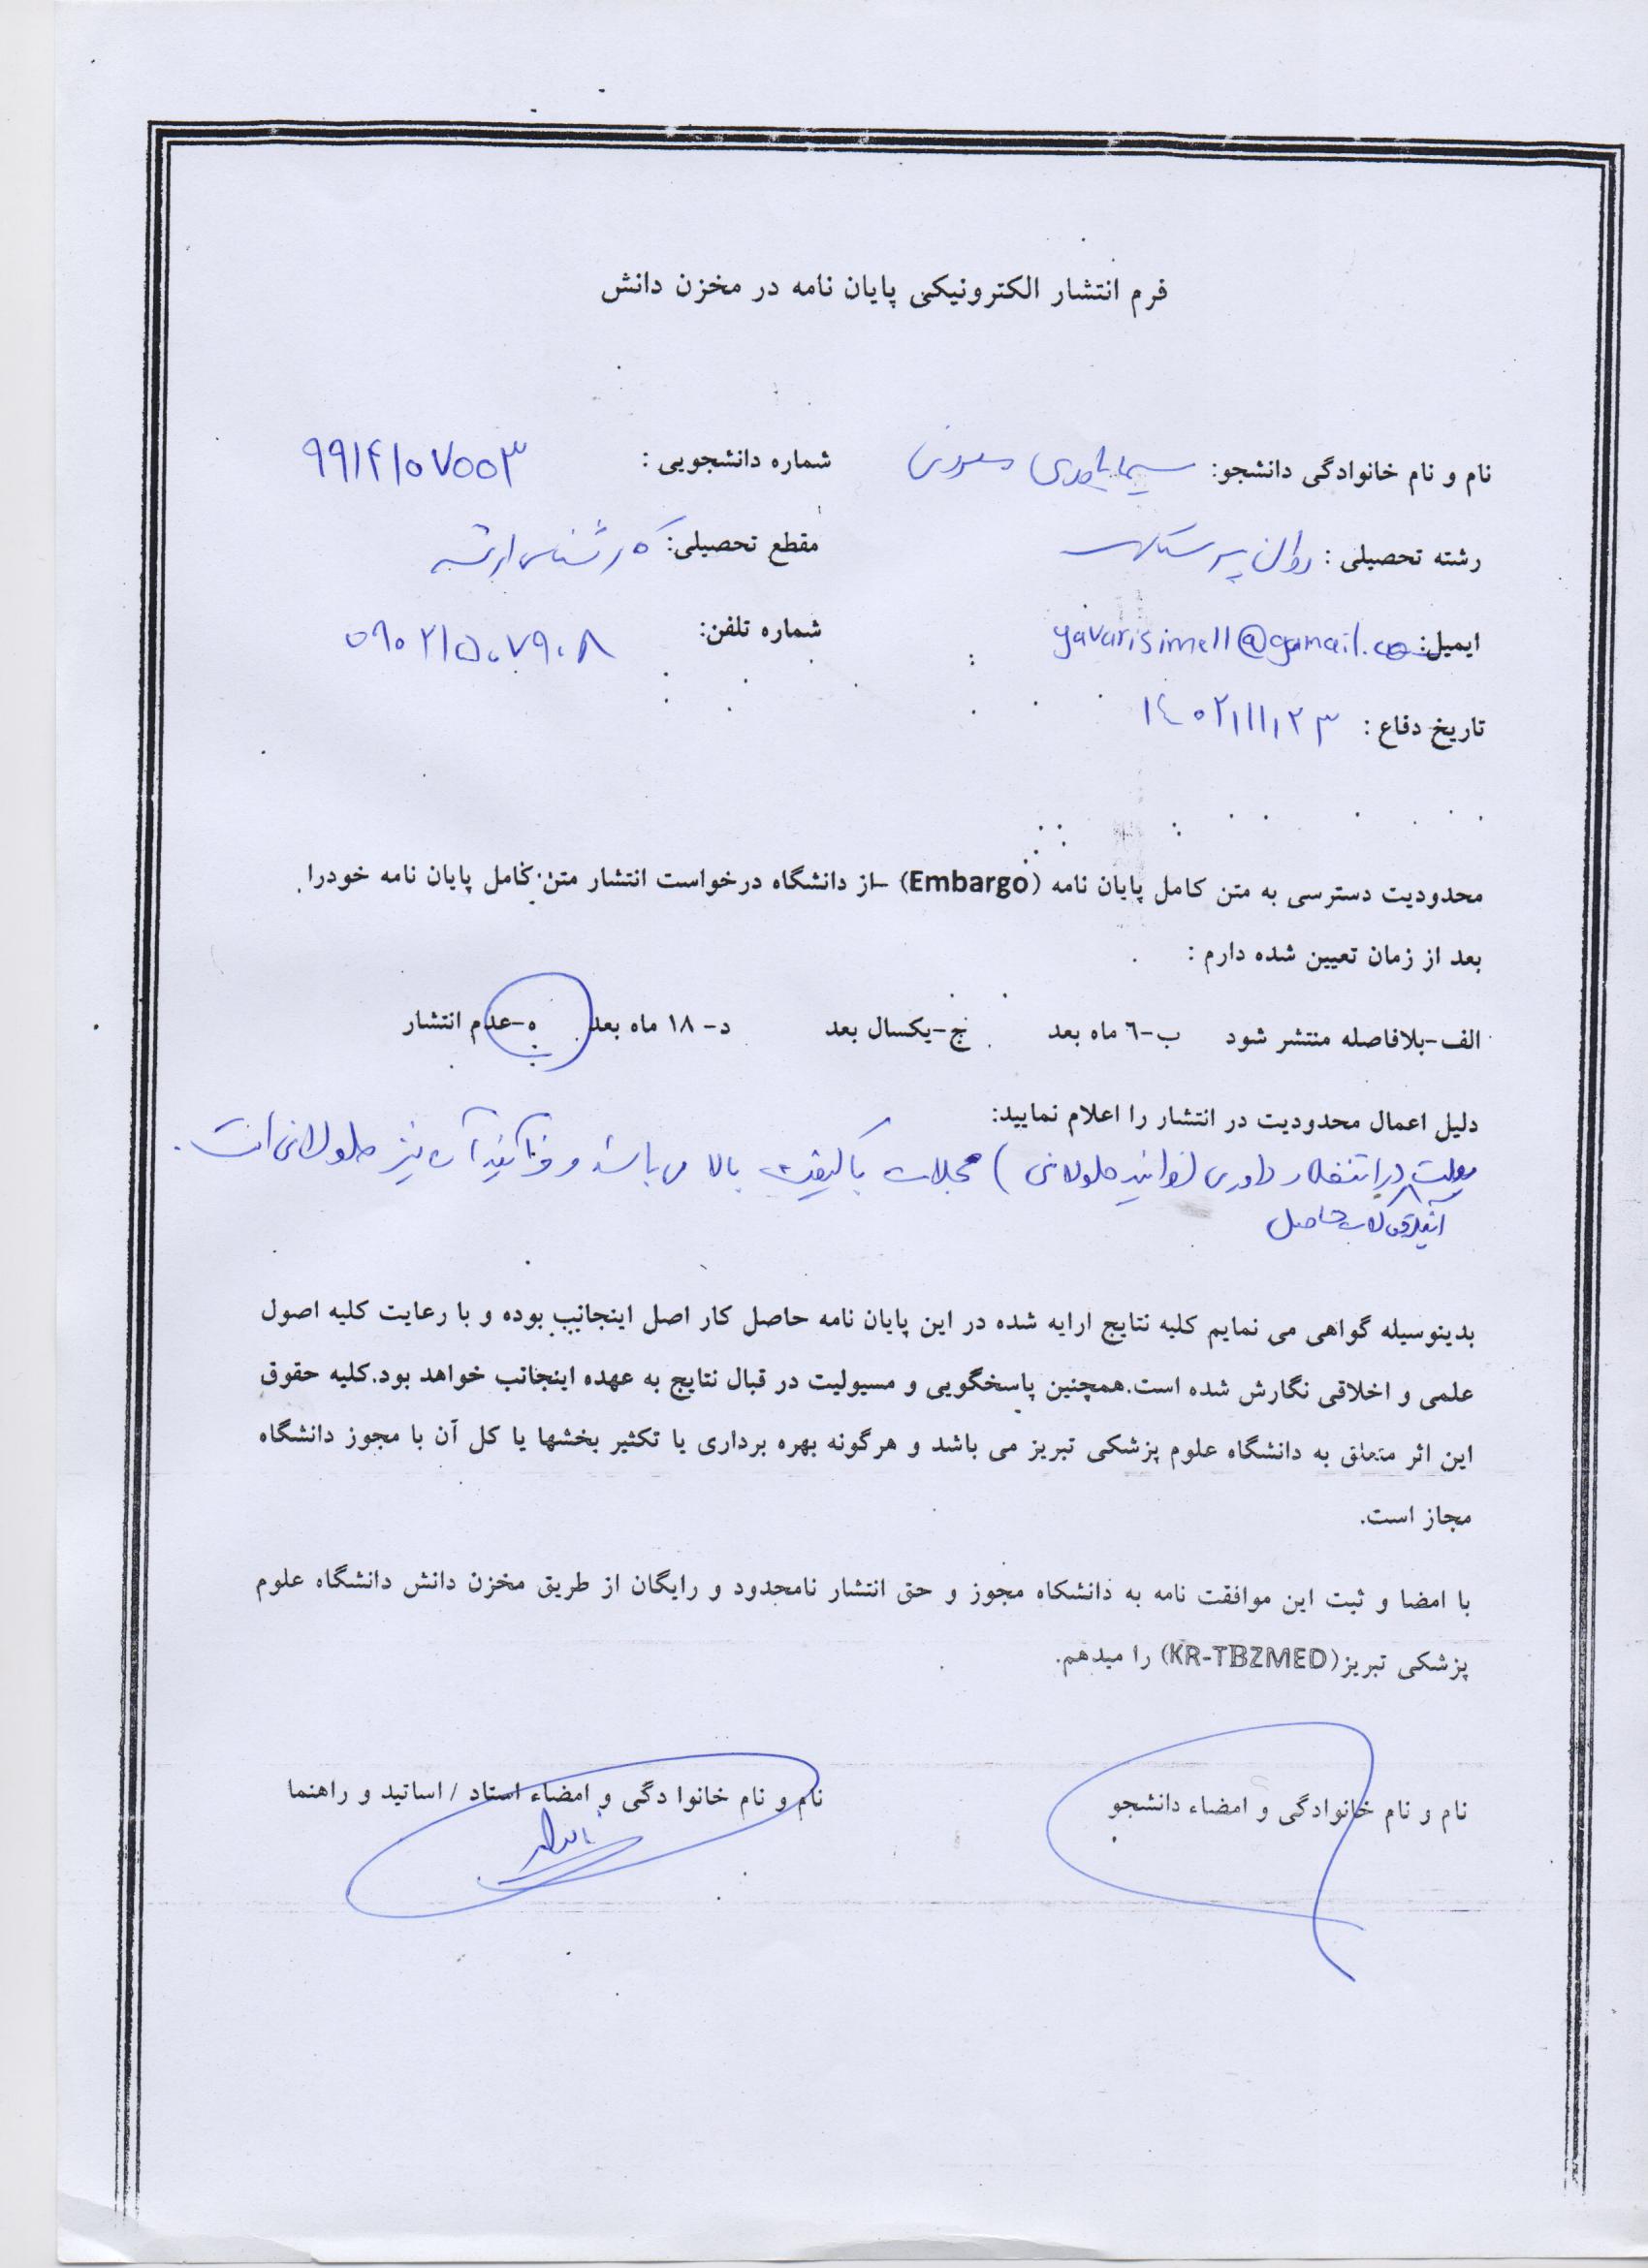 فرم انتشار الکترونیکی پایان نامه در مخزن دانش
نام و نام خانوادگی دانشجو: سیما یاوری شماره دانشجویی : ۹۹۱۴۱۰۷۰۰۳
رشته تحصیلی : روان پرستاری مقطع تحصیلی: کارشناسی ارشد
ایمیل: شماره تلفن: ۰۹۰۲۱۵۰۷۹۰۸
تاریخ دفاع : ۱٤۰۲/۱۱/۲۳
محدودیت دسترسی به متن کامل پایان نامه (Embargo) -از دانشگاه درخواست انتشار متن کامل پایان نامه خودرا
بعد از زمان تعیین شده دارم :
الف-بلافاصله منتشر شود ب-٦ ماه بعد ج-یکسال بعد د- ۱۸ ماه بعد ه-عدم انتشار
دلیل اعمال محدودیت در انتشار را اعلام نمایید:
در انتظار داوری طولانی ) مجلات با کیفیت بالا می باشد و فرآیند آن نیز طولانی است.
حاصل
بدینوسیله گواهی می نمایم کلیه نتایج ارایه شده در این پایان نامه حاصل کار اصل اینجانب بوده و با رعایت کلیه اصول
علمی و اخلاقی نگارش شده است.همچنین پاسخگویی و مسیولیت در قبال نتایج به عهده اینجانب خواهد بود.کلیه حقوق
این اثر متعلق به دانشگاه علوم پزشکی تبریز می باشد و هرگونه بهره برداری یا تکثیر بخشها یا کل آن با مجوز دانشگاه
مجاز است.
با امضا و ثبت این موافقت نامه به دانشکاه مجوز و حق انتشار نامحدود و رایگان از طریق مخزن دانش دانشگاه علوم
پزشکی تبریز(KR-TBZMED) را میدهم.
نام و نام خانوادگی و امضاء دانشجو نام و نام خانوا دگی و امضاء استاد / اساتید و راهنما